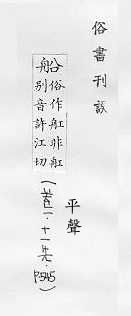 俗書刊誤
平聲
船俗作舡非舡
別音許江切
(卷一·十一先·P.545)